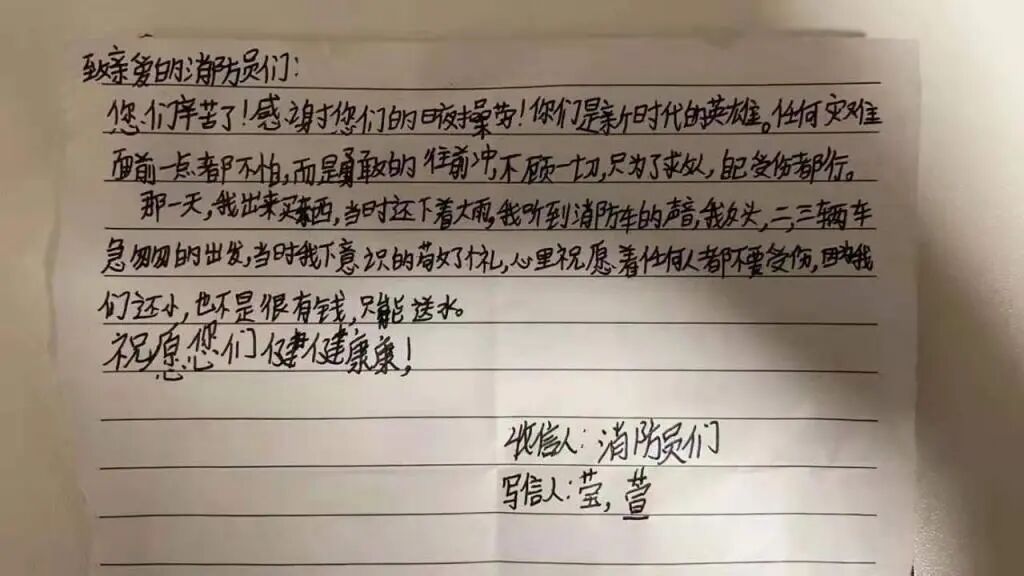 致亲爱的消防员们:
您们辛苦了!感谢您们的日夜操劳!你们是新时代的英雄。任何灾难
面前一点都不怕,而是勇敢的往前冲,不顾一切,只为了救人,自己受伤都行。
那一天,我出来买东西,当时还下着大雨,我听到消防车的声音,我回头,二,三辆车
急匆匆的出发,当时我下意识的敬了个礼,心里祝愿着任何人都不要受伤,我
们还小,也不是很有钱,只能送水。
祝愿您们健健康康!
收信人:消防员们
写信人:莹,萱